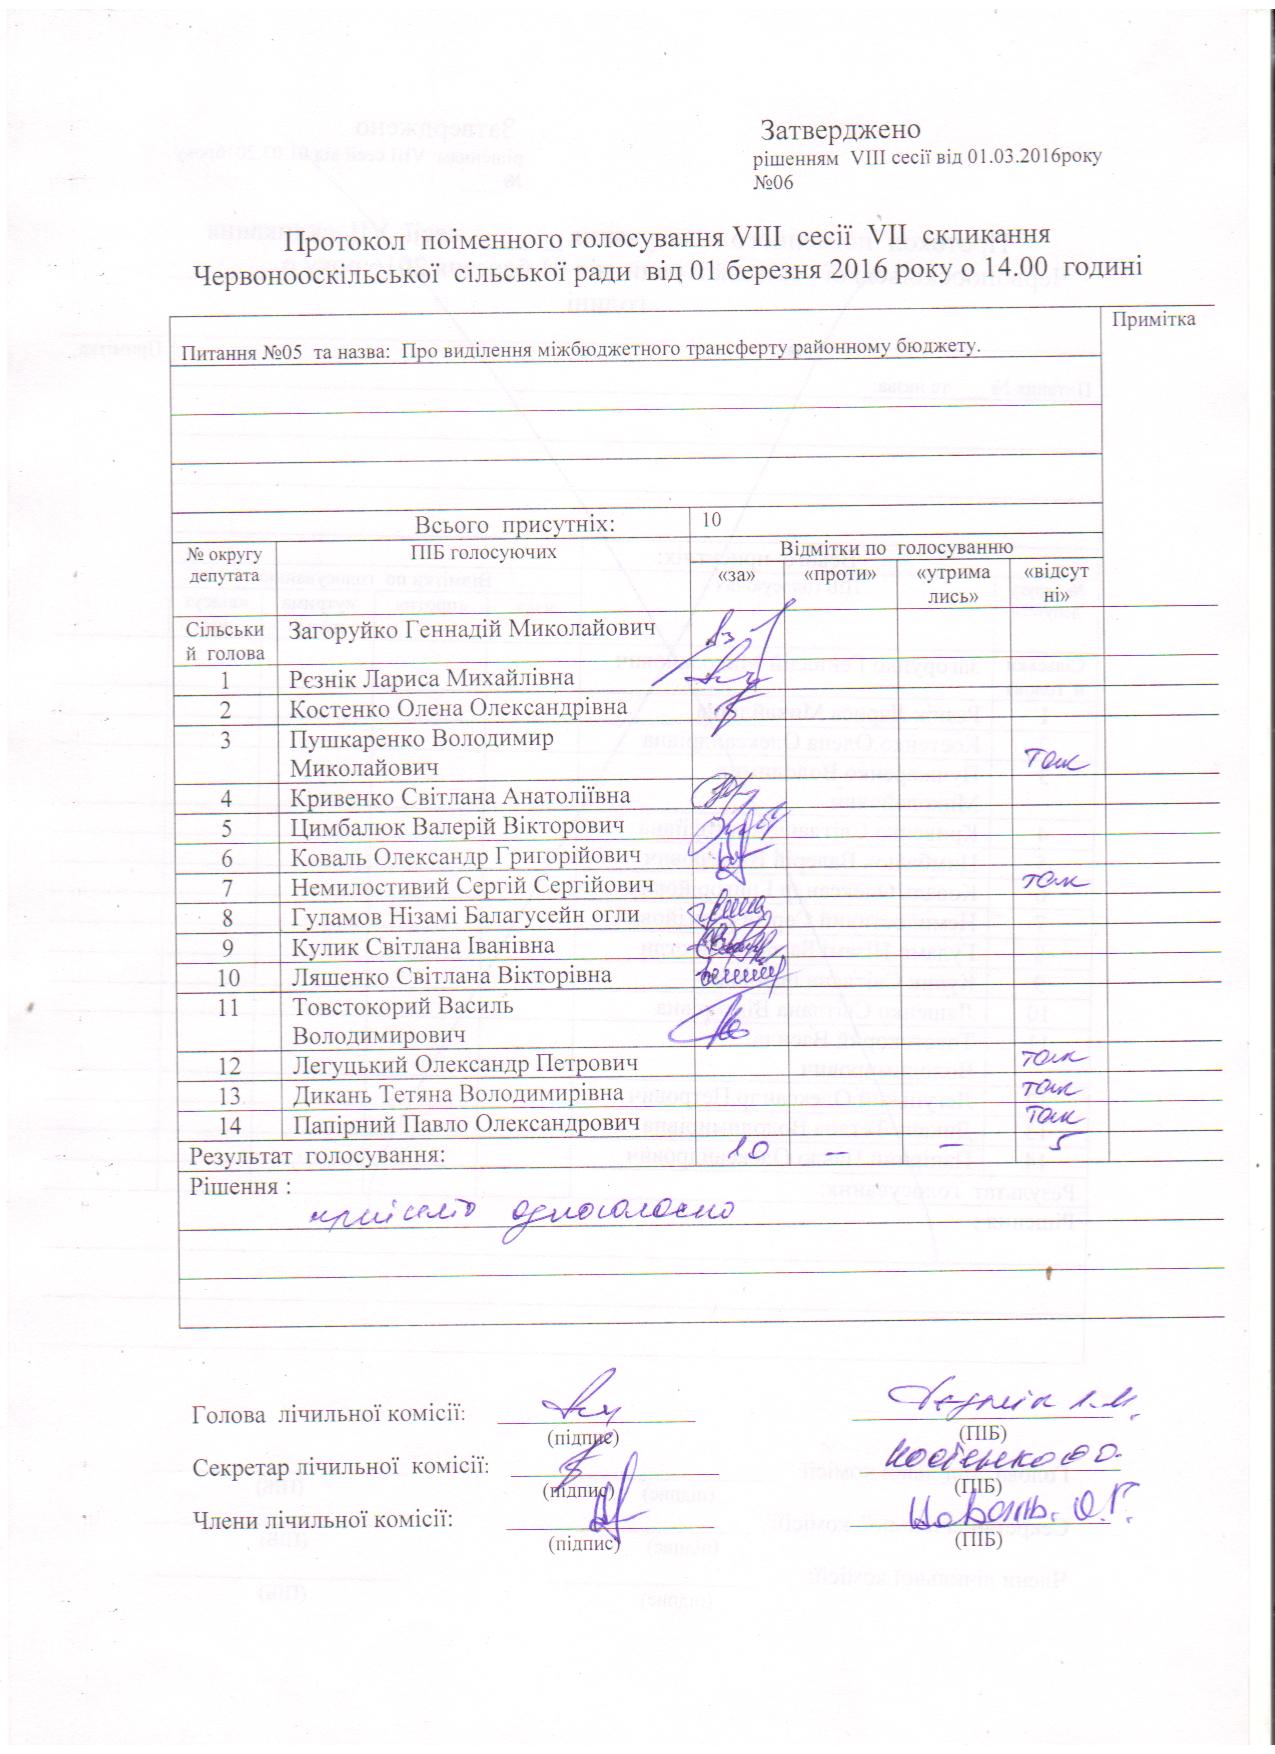 Затверджено
рішенням VIII сесії від 01.03.2016року
№06
Протокол поіменного голосування VIII сесії VII скликання
Червонооскільської сільської ради від 01 березня 2016 року о 14.00 годині
Примітка
Питання №05 та назва: Про виділення міжбюджетного трансферту районному бюджету.
Всього присутніх: 10
№ округу депутата ПІБ голосуючих Відмітки по голосуванню
«за» «проти» «утрима лись» «відсут ні»
Сільськи Загоруйко Геннадій Миколайович
й голова
1 Рєзнік Лариса Михайлівна
2 Костенко Олена Олександрівна
3 Пушкаренко Володимир
Миколайович
4 Кривенко Світлана Анатоліївна
5 Цимбалюк Валерій Вікторович
6 Коваль Олександр Григорійович
7 Немилостивий Сергій Сергійович
8 Гуламов Нізамі Балагусейн огли
9 Кулик Світлана Іванівна
10 Ляшенко Світлана Вікторівна
11 Товстокорий Василь
Володимирович
12 Легуцький Олександр Петрович
13 Дикань Тетяна Володимирівна
14 Папірний Павло Олександрович
Результат голосування: 10 – – 5
Рішення :
прийнято одноголосно
Голова лічильної комісії: Рєзнік Л.М.
(підпис) (ПІБ)
Секретар лічильної комісії: Костенко О.О.
(підпис) (ПІБ)
Члени лічильної комісії: Коваль О.Г.
(підпис) (ПІБ)